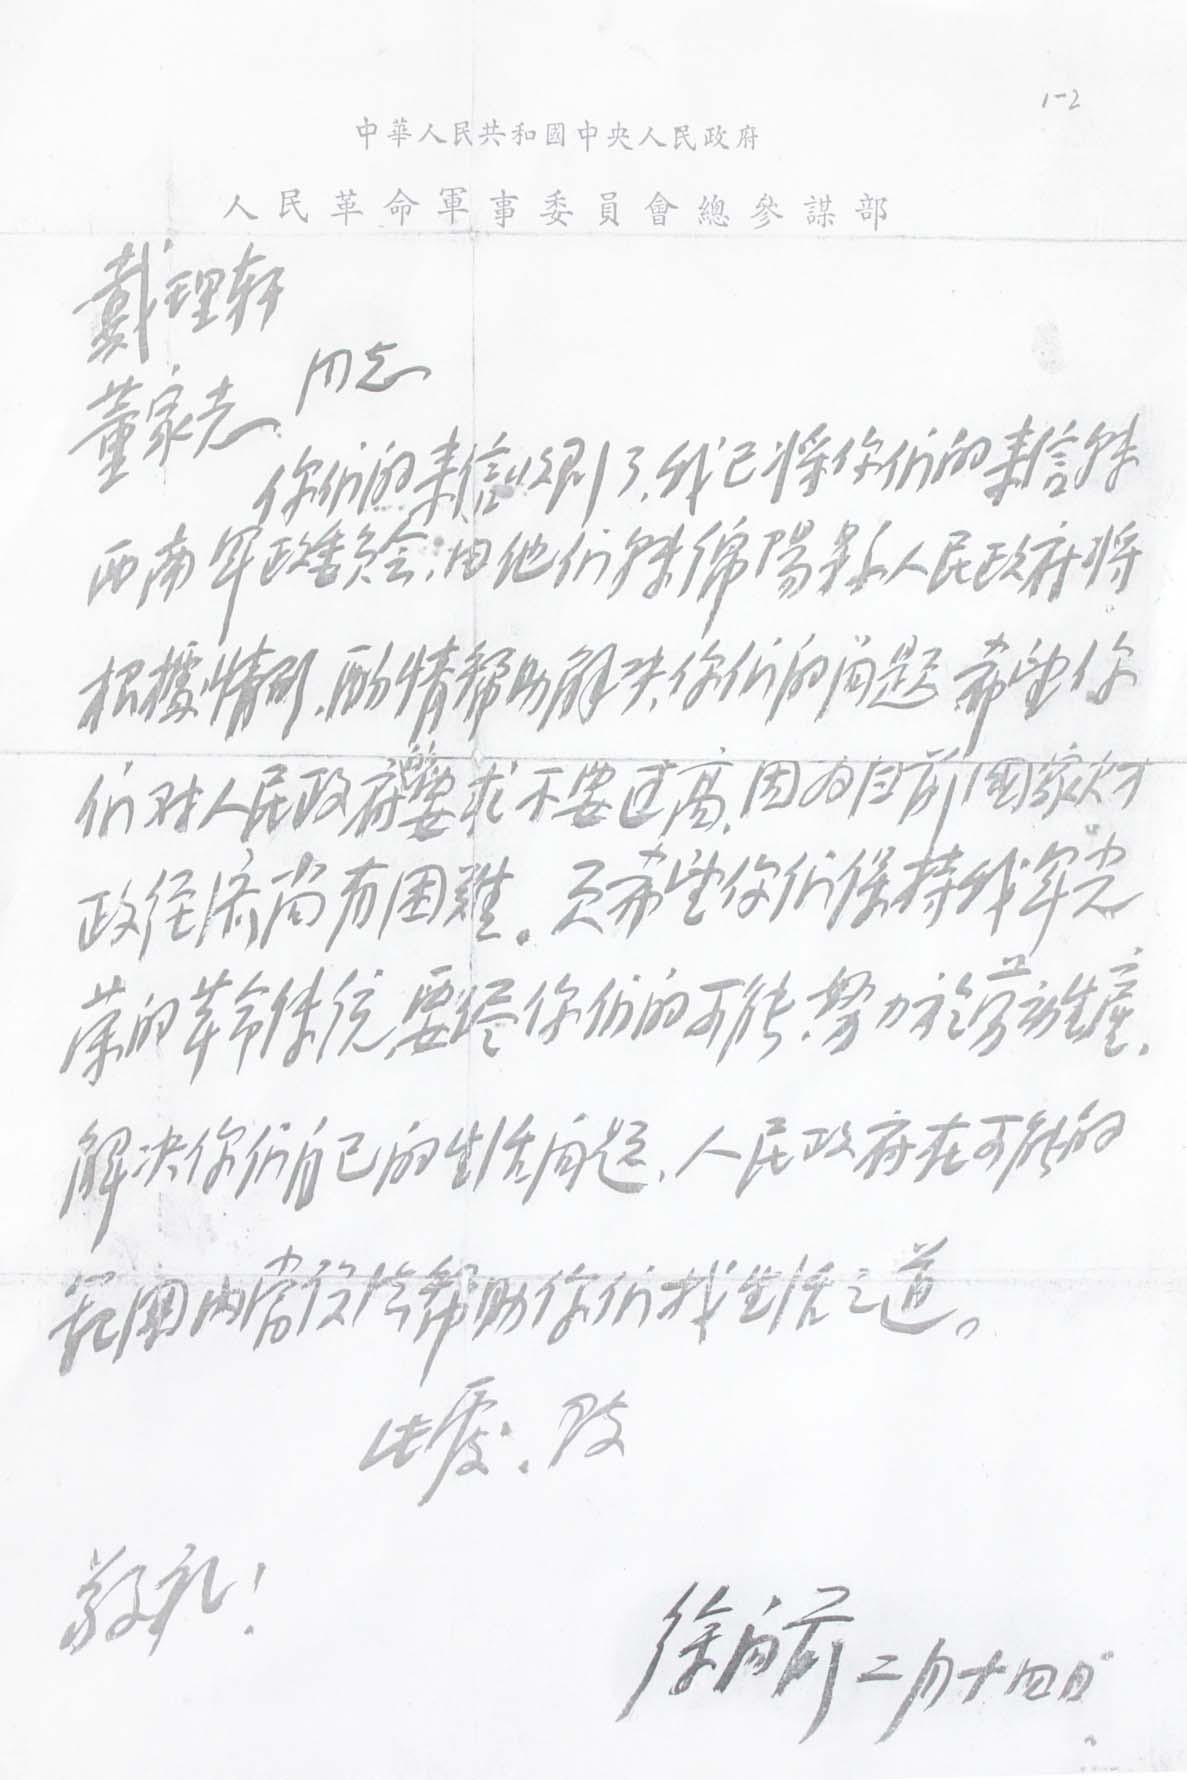 1-2
中華人民共和國中央人民政府
人民革命軍事委員會總參謀部
戴理轩
董家志 同志
你们的来信收到了,我已将你们的来信转
西南军政委员会,由他们转绵阳县人民政府将
根據情形,酌情帮助解决你们的问题 希望你
们对人民政府要求不要过高,因为目前國家财
政经济尚有困難。更希望你们保持我军光
荣的革命传统,要尽你们的可能,努力於劳动生產,
解决你们自己的生活问题,人民政府在可能的
范圍内当设法帮助你们找生活之道。
此覆,致
敬礼!
徐向前 二月十四日